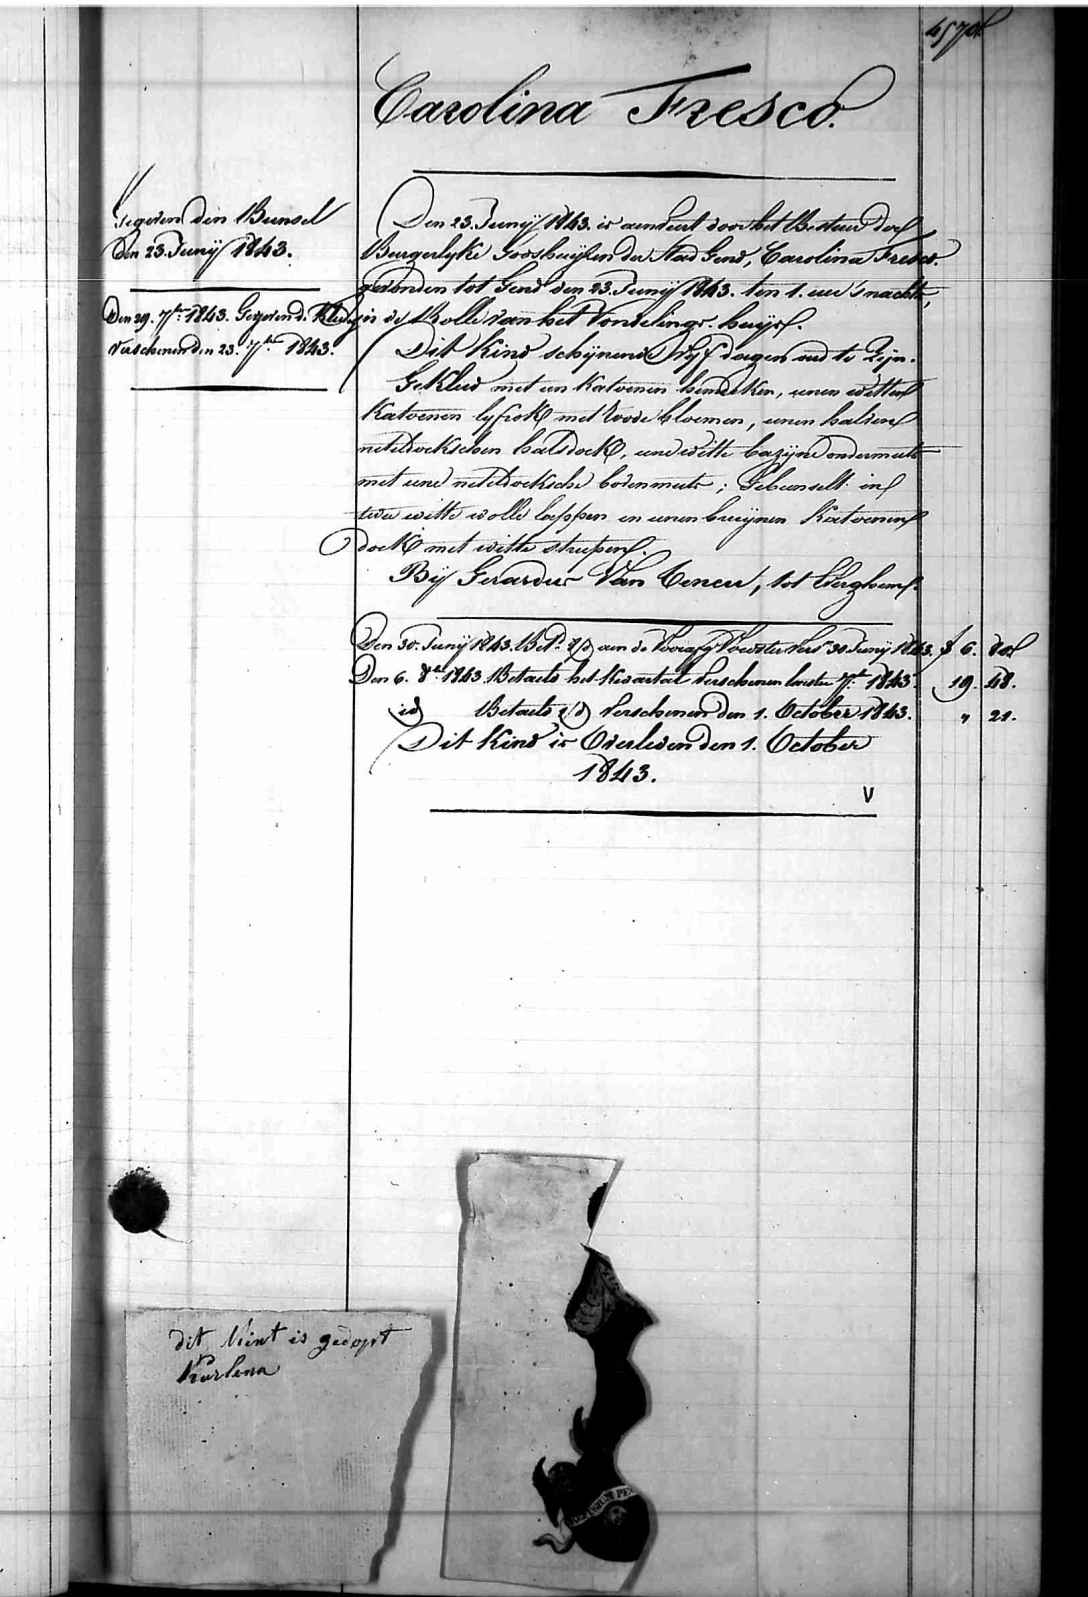 Carolina Fresco.
Gegeven den Bunsel
Den 23. Junij 1843.
Den 29. 7br 1843. Gegeven d. Kleedij
Verschenen den 23. 7br 1843.
Den 23. Junij 1843. is aenveert door het Bestuer der
Burgerlyke Godshuijsen der Stad Gend, Carolina Fresco.
gevonden tot Gend den 23. Junij 1843. ten 1. ure 's nachts,
in de Rolle van het Vondelings-huijs.
Dit Kind schijnende Vijf dagen oud te Zijn.
Gekleed met een Katoenen hemdeken, eenen witten
Katoenen lyfrok met roode bloemen, eenen halven
neteldoekschen halsdoek, eene witte bazijne ondermuts
met eene neteldoeksche bovenmuts; Gebunselt in
twee witte wolle lappen en eenen bruijnen Katoenen
doek met witte streepen.
Bij Gerardus Van, tot
Den 30. Junij 1843. Bet. aen de Voedster Vers. 30 Junij 1843. f 6.
Den 6. 8br 1843. Betaeld het Kwartael Verschenen lesten 7br 1843. 19. 48.
id Betaeld Verschenen den 1. October 1843. " 21.
Dit Kind is Overleden den 1. October
1843.
V
dit kint is gedopt
Karlena